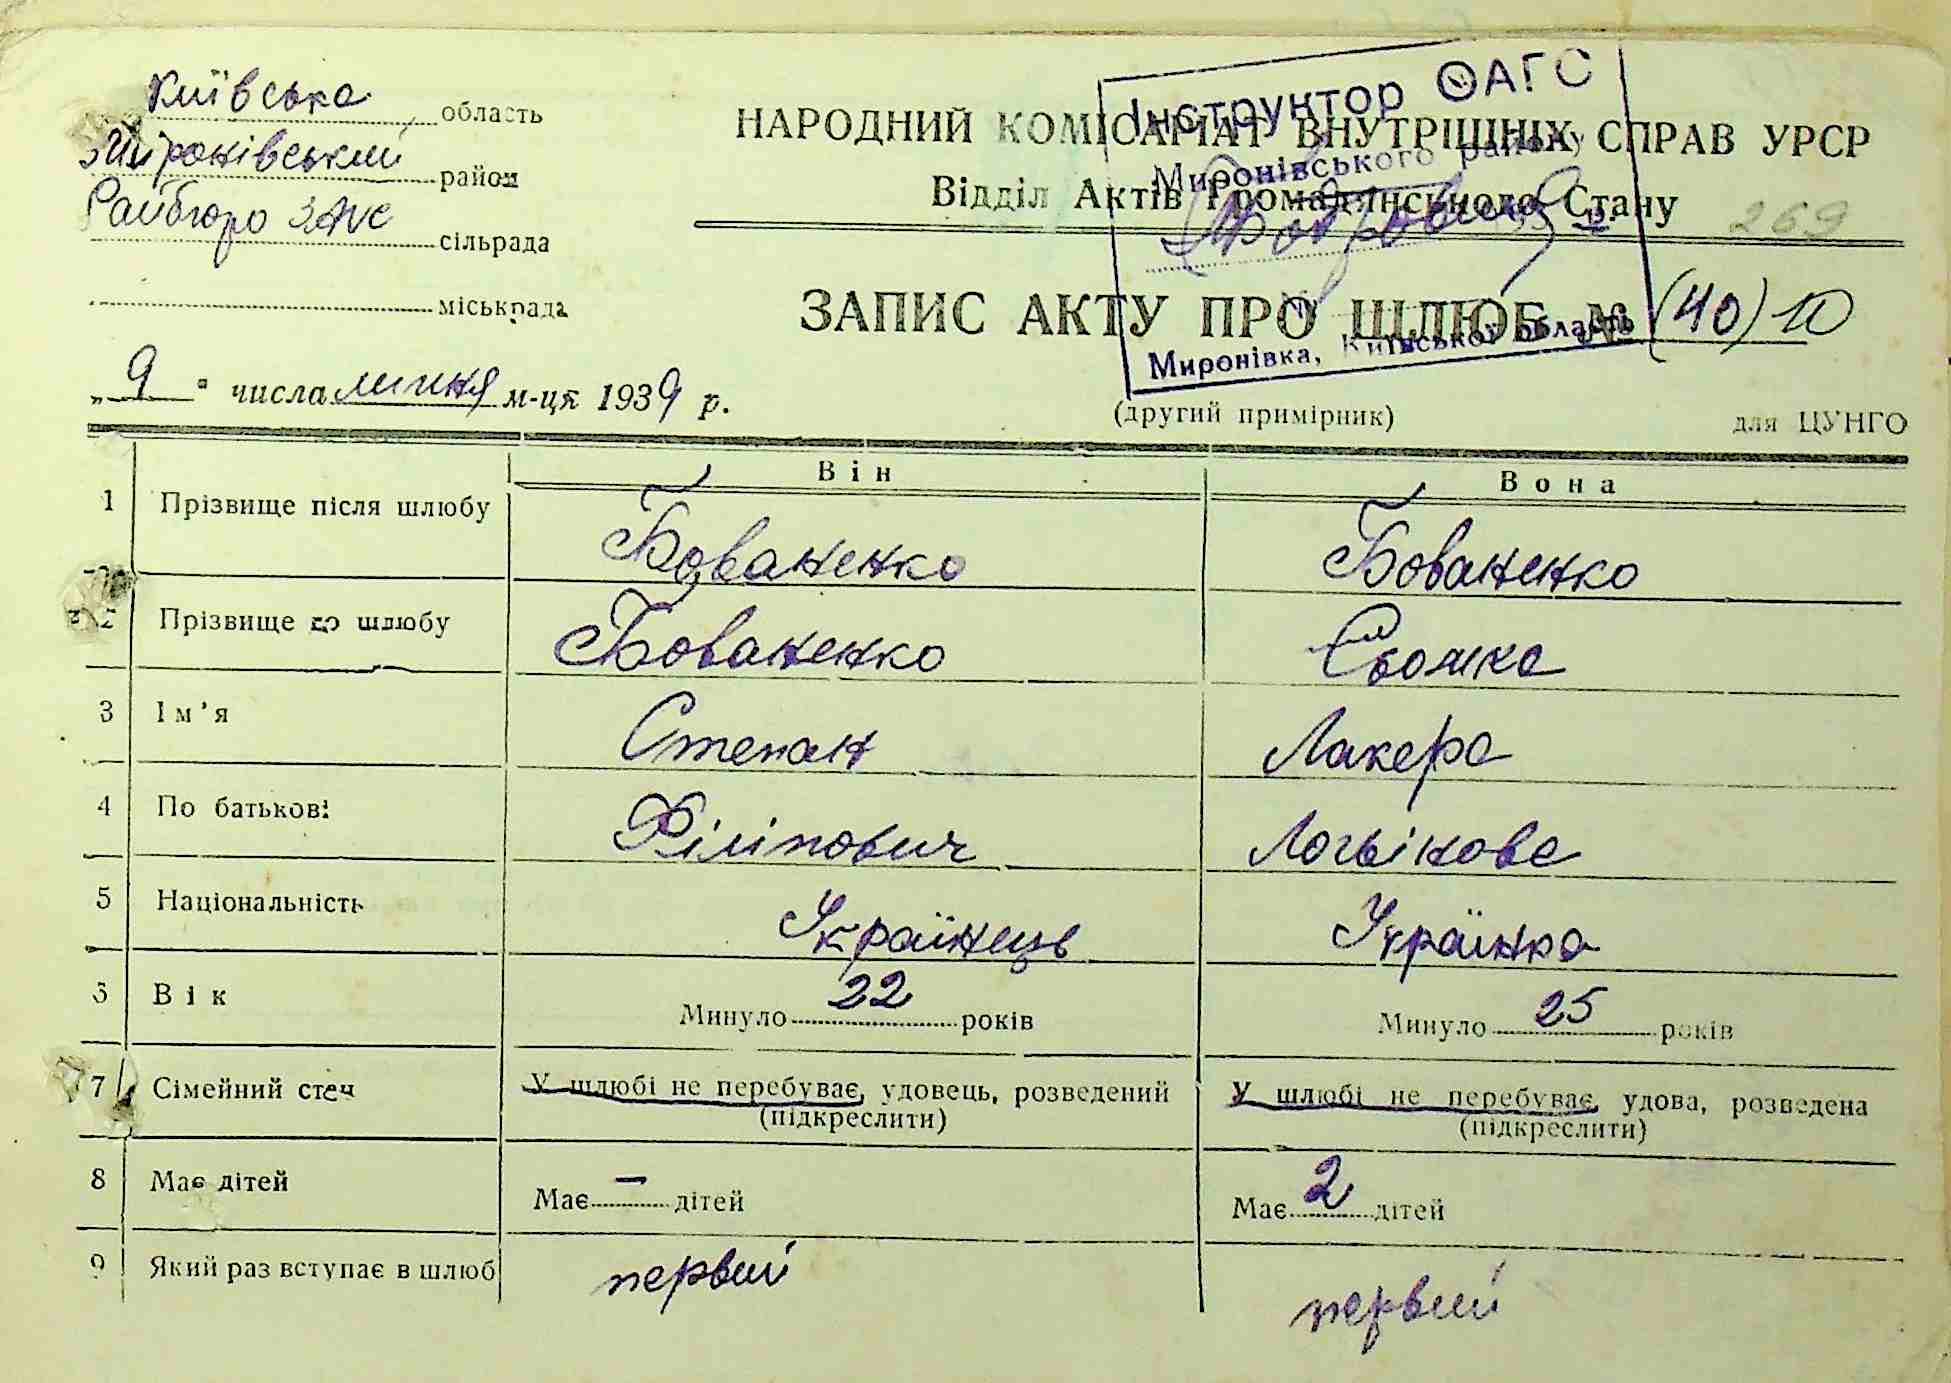 Київська область
Миронівський район
Райбюро ЗАГС сільрада
міськрада
НАРОДНИЙ КОМІСАРІАТ ВНУТРІШНІХ СПРАВ УРСР
Відділ Актів Громадянського Стану
269
Інструктор ОАГС
Миронівського району
Миронівка, Київської області
ЗАПИС АКТУ ПРО ШЛЮБ № (40) 10
„9" числа липня м-ця 1939 р.
(другий примірник)
для ЦУНГО
Він Вона
1 Прізвище після шлюбу Бованенко Бованенко
2 Прізвище до шлюбу Бованенко
3 Ім'я Степан Лакера
4 По батькові Філіпович
5 Національність Українець Українка
6 Вік Минуло 22 років Минуло 25 років
7 Сімейний стан У шлюбі не перебуває, удовець, розведений У шлюбі не перебуває, удова, розведена
(підкреслити) (підкреслити)
8 Має дітей Має — дітей Має 2 дітей
9 Який раз вступає в шлюб первий первий